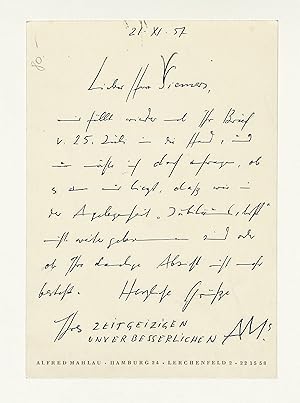 80.-
21. XI. 57
Lieber Herr Siemers,
mir fällt wieder mal Ihr Brief
v. 25. Juli in die Hand, und
nun möchte ich doch anfragen, ob
es an mir liegt, daß wir in
der Angelegenheit „
nicht weitergekommen sind oder
ob Ihre damalige Absicht nicht mehr
besteht. Herzliche Grüße
Ihres ZEITGEIZIGEN
UNVERBESSERLICHEN AMs.
ALFRED MAHLAU · HAMBURG 24 · LERCHENFELD 2 · 22 35 50